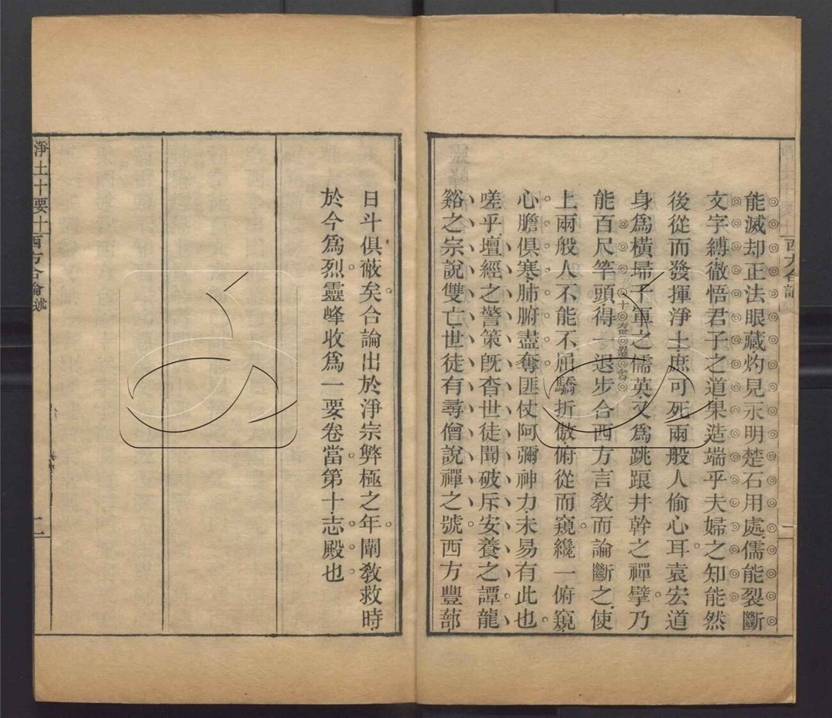 能滅却正法眼藏灼見永明楚石用處儒能裂斷
文字縛徹悟君子之道果造端乎夫婦之知能然
後從而發揮淨土庶可死兩般人偷心耳袁宏道
身爲橫掃千軍之儒英又爲跳踉井幹之禪擘乃
能百尺竿頭得一退步合西方言教而論斷之使
上兩般人不能不屈驕折傲俯從而窺纔一俯窺
心膽俱寒肺腑盡奪匪仗阿彌神力未易有此也
嗟乎壇經之警策旣杳世徒聞破斥安養之譚龍
谿之宗說雙亡世徒有尋僧說禪之號西方豐蔀
日斗俱蔽矣合論出於淨宗弊極之年闡教救時
於今爲烈靈峰收爲一要卷當第十志殿也
淨土十要十西方合論述
二